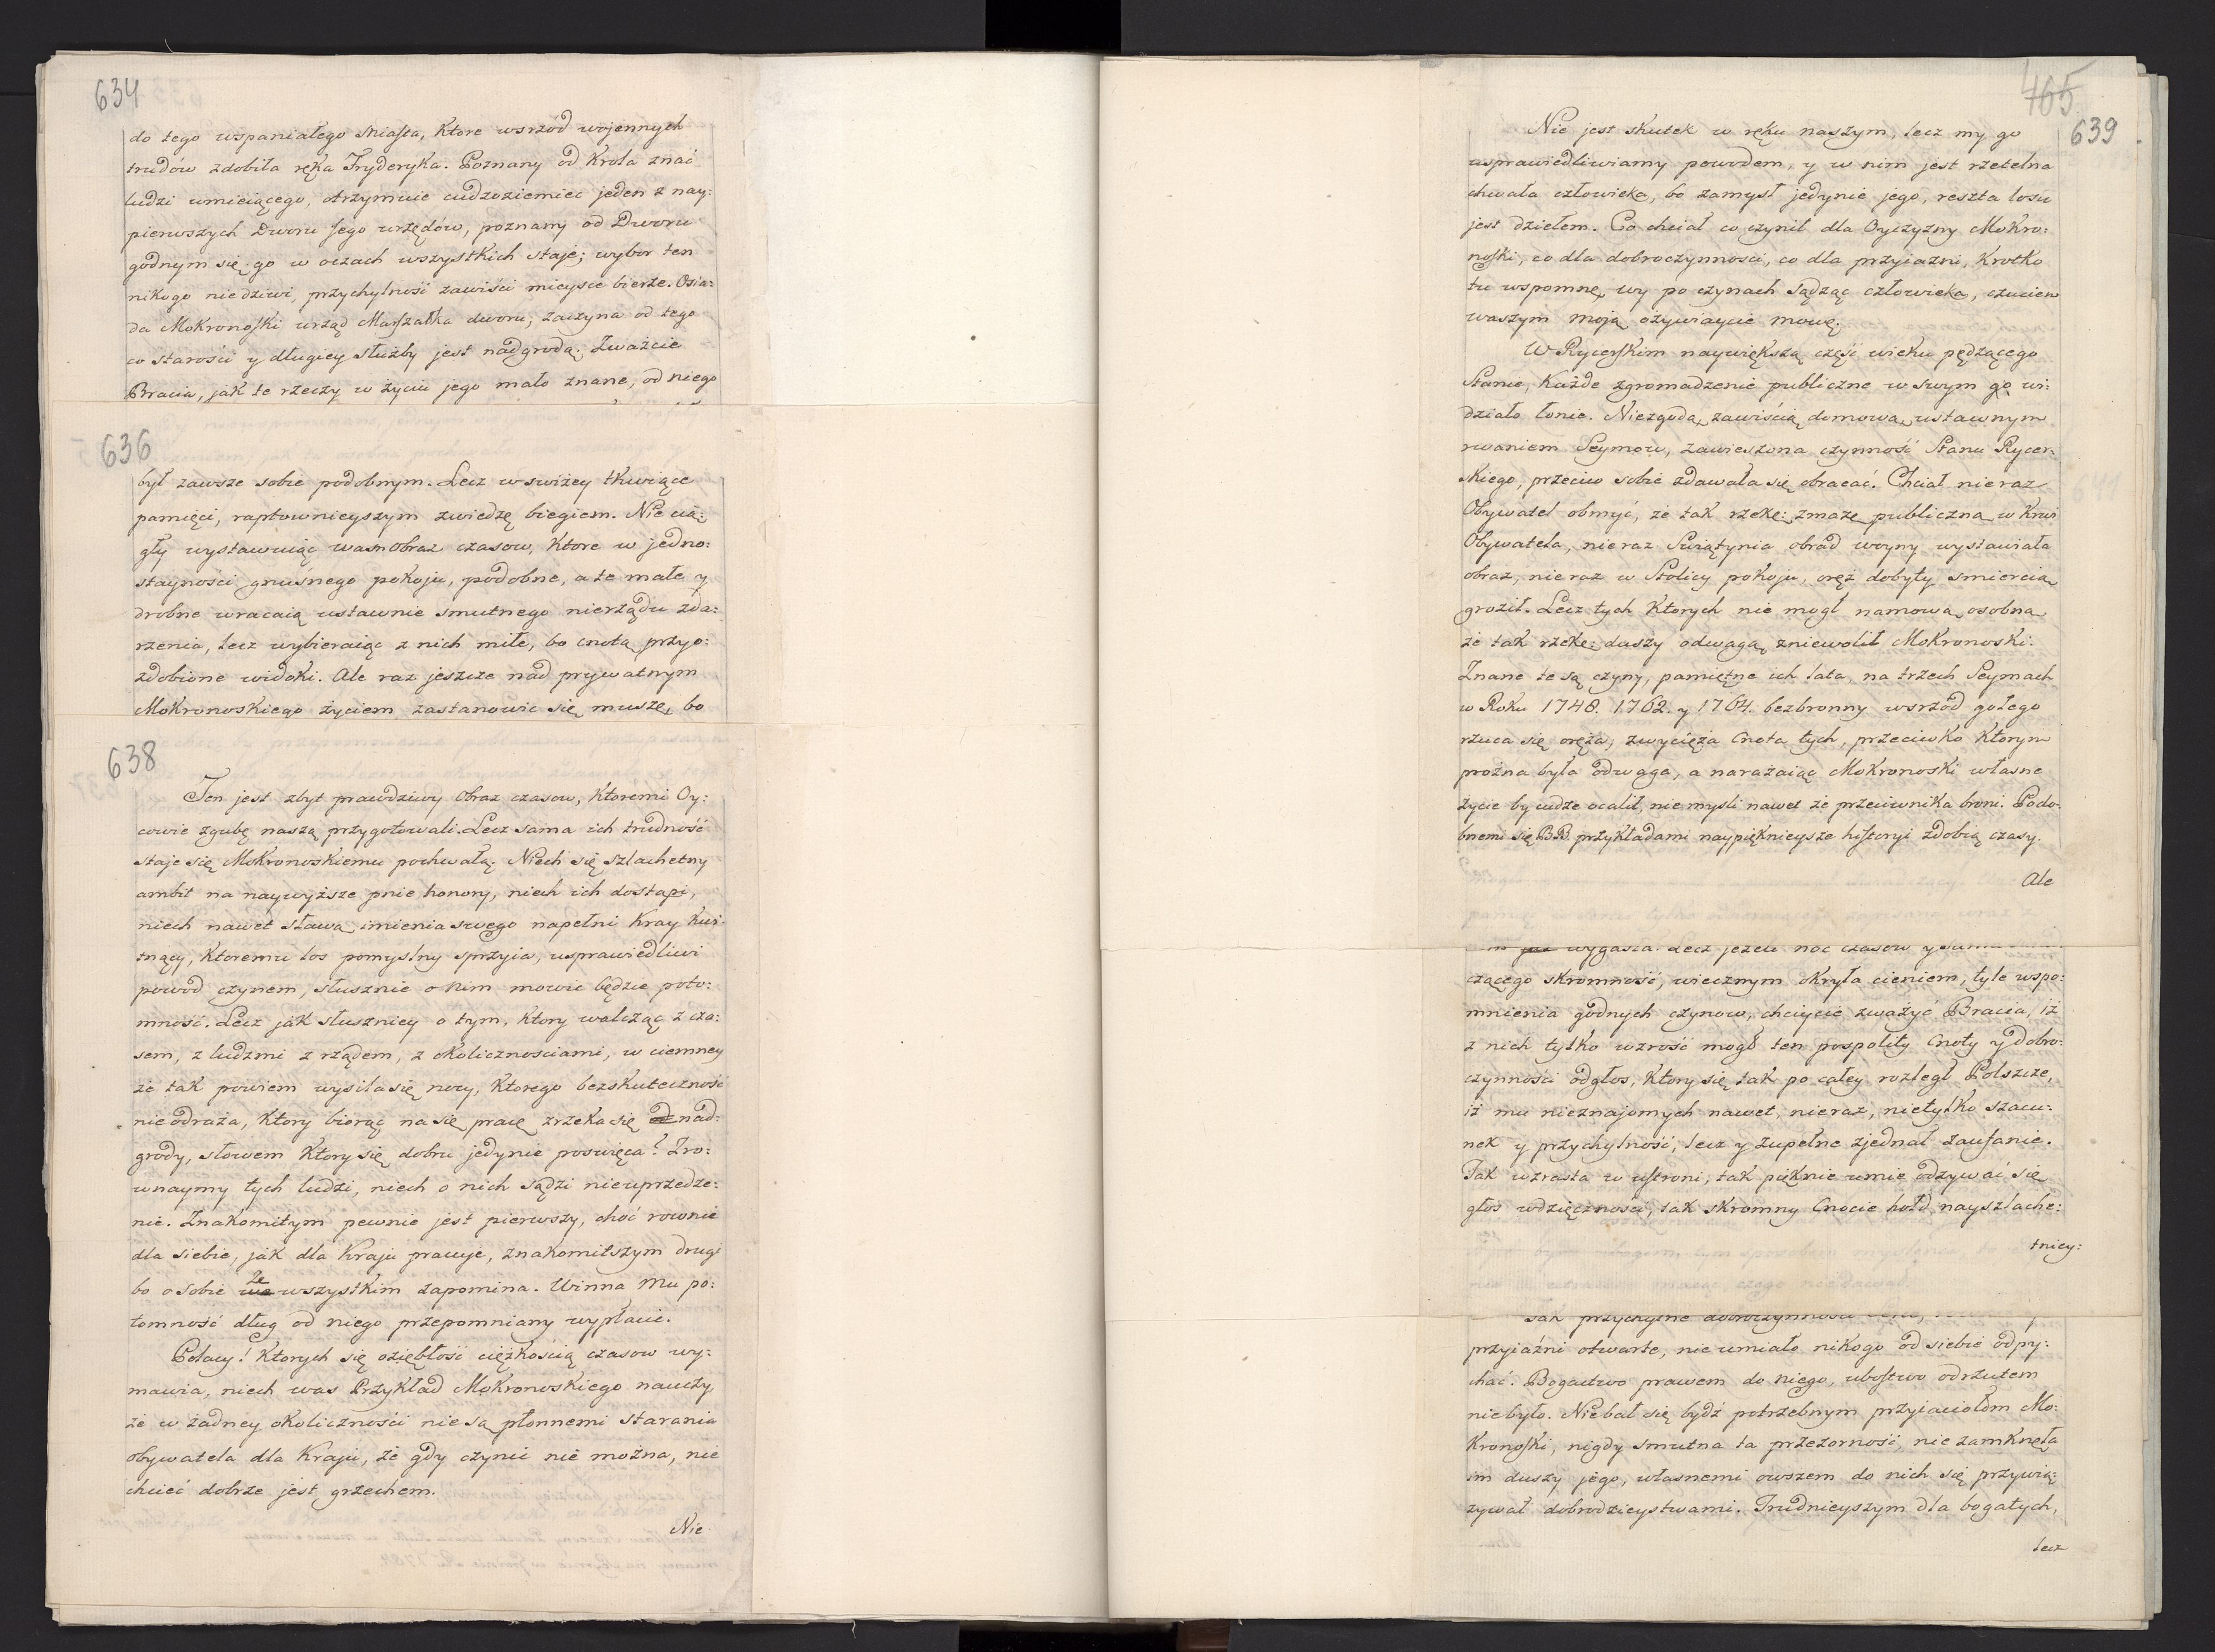 634
do tego wspaniałego Miasta, które wsrzód wojennych
trudów zdobiła ręka Fryderyka. Poznany od Krola znać
ludzi umieiącego, otrzymuie cudzoziemiec jeden z nay:
pierwszych Dworu jego urzędów, poznany od Dworu
godnym się go w oczach wszystkich staje; wybor ten
nikogo nie dziwi, przychylność zawiści mieysce bierze. Osia:
da Mokronoski urząd Marszałka dworu, zaczyna od tego
co starości y długiey służby jest nadgrodą. Zważcie
Bracia, jak te rzeczy w życiu jego mało znane, od niego
636
był zawsze sobie podobnym. Lecz w swiżey tkwiące
pamięci, raptownieyszym zwiedzę biegiem. Nie cią:
gły wystawuiąc wam obraz czasow, ktore w jedno:
stayności gnuśnego pokoju, podobne, a te małe y
drobne wracaią ustawnie smutnego nierządu zda:
rzenia, lecz wybieraiąc z nich miłe, bo cnotą przyo:
zdobione widoki. Ale raz jeszcze nad prywatnym
Mokronoskiego życiem zastanowic się muszę, bo
638
Ten jest zbyt prawdziwy obraz czasow, ktoremi Oy:
cowie zgubę naszą przygotowali. Lecz sama ich trudność
staje się Mokronoskiemu pochwałą. Niech się szlachetny
ambit na naywyższe pnie honory, niech ich dostąpi,
niech nawet sławą imienia swego napełni Kray kwi:
tnący, ktoremu los pomyslny sprzyia, usprawiedliwi
powod czynem, słusznie o nim mowic będzie poto:
mność. Lecz jak słuszniey o tym, ktory walcząc z cza:
sem, z ludzmi z rządem, z okolicznosciami, w ciemney
że tak powiem wysila się nocy, ktorego bezskuteczność
nie odraża, ktory biorąc na się pracę zrzeka się od nad:
grody, słowem ktory się dobru jedynie poswięca? Zro:
wnaymy tych ludzi, niech o nich sądzi nieuprzedze:
nie. Znakomitym pewnie jest pierwszy, choć rownie
dla siebie, jak dla Kraju pracuje, znakomitszym drugi
ze
bo o sobie we wszystkim zapomina. Winna Mu po:
tomność dług od niego przepomniany wypłacić.
Polacy! Ktorych się oziębłość ciężkością czasow wy:
mawia, niech was Przykład Mokronoskiego nauczy,
że w żadney okoliczności nie są płonnemi starania
obywatela dla Kraju, że gdy czynic nie można, nie
chcieć dobrze jest grzechem.
Nie
465
639
Nie jest skutek w ręku naszym, lecz my go
usprawiedliwiamy powodem, y w nim jest rzetelna
chwała człowieka, bo zamysł jedynie jego, reszta losu
jest dziełem. Co chciał co czynił dla Oyczyzny Mokro:
noski, co dla dobroczynnosci, co dla przyiazni, krotko
tu wspomnę, wy po czynach sądząc człowieka, czuciem
waszym moją ożywiaycie mowę.
W Rycerskim naywiększą część wieku pędzącego
Stanie, każde zgromadzenie publiczne w swym go wi:
działo łonie. Niezgodą, zawiścią domową, ustawnym
rwaniem Seymow, zawieszona czynność Stanu Rycer:
skiego, przeciw sobie zdawała się obracać. Chciał nieraz
Obywatel obmyć, że tak rzekę: zmazę publiczną w krwi
Obywatela, nieraz Swiątynia obrad woyny wystawiała
obraz, nieraz w Stolicy pokoju, oręż dobyty smiercią
groził. Lecz tych ktorych nie mogł namową, osobną
że tak rzekę: duszy odwagą, zniewolił Mokronoski.
Znane te są czyny, pamiętne ich lata, na trzech Seymach
w Roku 1748. 1762. y 1764. bezbronny wsrzód gołego
rzuca się oręża, zwycięża Cnotą tych, przeciwko ktorym
prożna była odwaga, a narażaiąc Mokronoski własne
życie by cudze ocalił, nie mysli nawet że przeciwnika broni. Podo:
bnemi się B.B. przykładami naypięknieysze historyi zdobią czasy.
Ale
wygasła. Lecz jeżeli noc czasow y
czącego skromność, wiecznym okryła cieniem, tyle wspo:
mnienia godnych czynow, chcieycie zważyć Bracia, iż
z nich tylko wzrość mogł ten pospolity Cnoty y dobro:
czynności odgłos, ktory się tak po całey rozległ Polszcze,
iż mu nieznajomych nawet, nieraz, nietylko szacu:
nek y przychylność, lecz y zupełne zjednał zaufanie.
Tak wzrasta w ustroni, tak pięknie umie odzywać się
głos wdzięczności, tak skromny Cnocie hołd nayszlache:
tniey:
Tak przychylne dobroczynności
przyiaźni otwarte, nie umiało nikogo od siebie odpy:
chać. Bogactwo prawem do niego, ubostwo odrzutem
nie było. Nie bał się bydź potrzebnym przyiaciołom Mo:
kronoski, nigdy smutna ta przezorność nie zamknęła
im duszy jego, własnemi owszem do nich się przywią:
zywał dobrodzieystwami. Trudnieyszym dla bogatych,
lecz